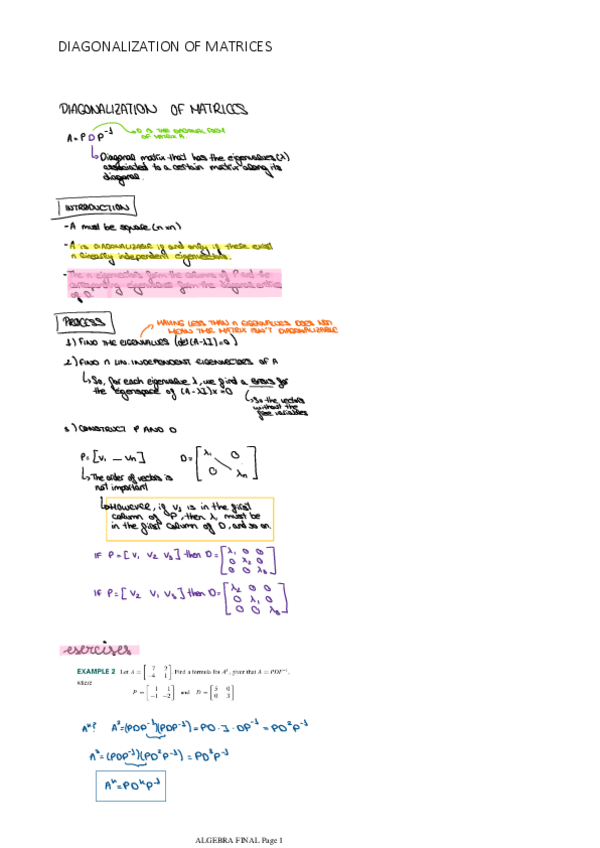 DIAGONALIZATION OF MATRICES
DIAGONALIZATION OF MATRICES
A=PDP⁻¹
D IS THE DIAGONAL FORM
OF MATRIX A
Diagonal matrix that has the eigenvalues (λ)
associated to a certain matrix along its
diagonal.
INTRODUCTION
- A must be square (nxn)
- A is DIAGONALIZABLE if and only if there exist
n linearly independent eigenvectors.
- The n eigenvectors form the columns of P and the
corresponding eigenvalues form the diagonal entries
of D.
PROCESS
HAVING LESS THAN n EIGENVALUES DOES NOT
MEAN THE MATRIX ISN'T DIAGONALIZABLE
1) FIND THE EIGENVALUES (det(A-λI)=0)
2) FIND n LIN. INDEPENDENT EIGENVECTORS OF A
So, for each eigenvalue λ, we find a BASIS for
the eigenspace of (A-λI)x=0
So the vectors
without the
free variables
3) CONSTRUCT P AND D
P=[V₁ — Vn] D=[λ₁ 0 0 λn]
The order of vectors is
not important
HOWEVER, if v₁ is in the first
column of P, then λ₁ must be
in the first column of D, and so on
IF P=[V₁ V₂ V₃] then D=[λ₁ 0 0 0 λ₂ 0 0 0 λ₃]
IF P=[V₂ V₁ V₃] then D=[λ₂ 0 0 0 λ₁ 0 0 0 λ₃]
exercises
EXAMPLE 2 Let A = [7 2 -4 1]. Find a formula for Aᵏ, given that A = PDP⁻¹,
where
P = [1 1 -1 -2] and D = [5 0 0 3]
Aᵏ? A²=(PDP⁻¹)(PDP⁻¹)=PD·I·DP⁻¹=PD²P⁻¹
A³=(PDP⁻¹)(PD²P⁻¹)=PD³P⁻¹
Aᵏ=PDᵏP⁻¹
ALGEBRA FINAL Page 1